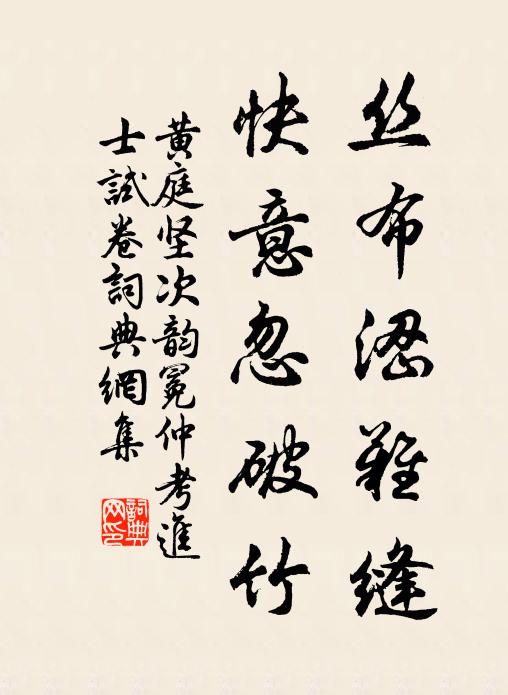 丝布涩难缝
快意忽破竹
黄庭坚次韵冕仲考進
士試卷詞典網集
詞典
网印